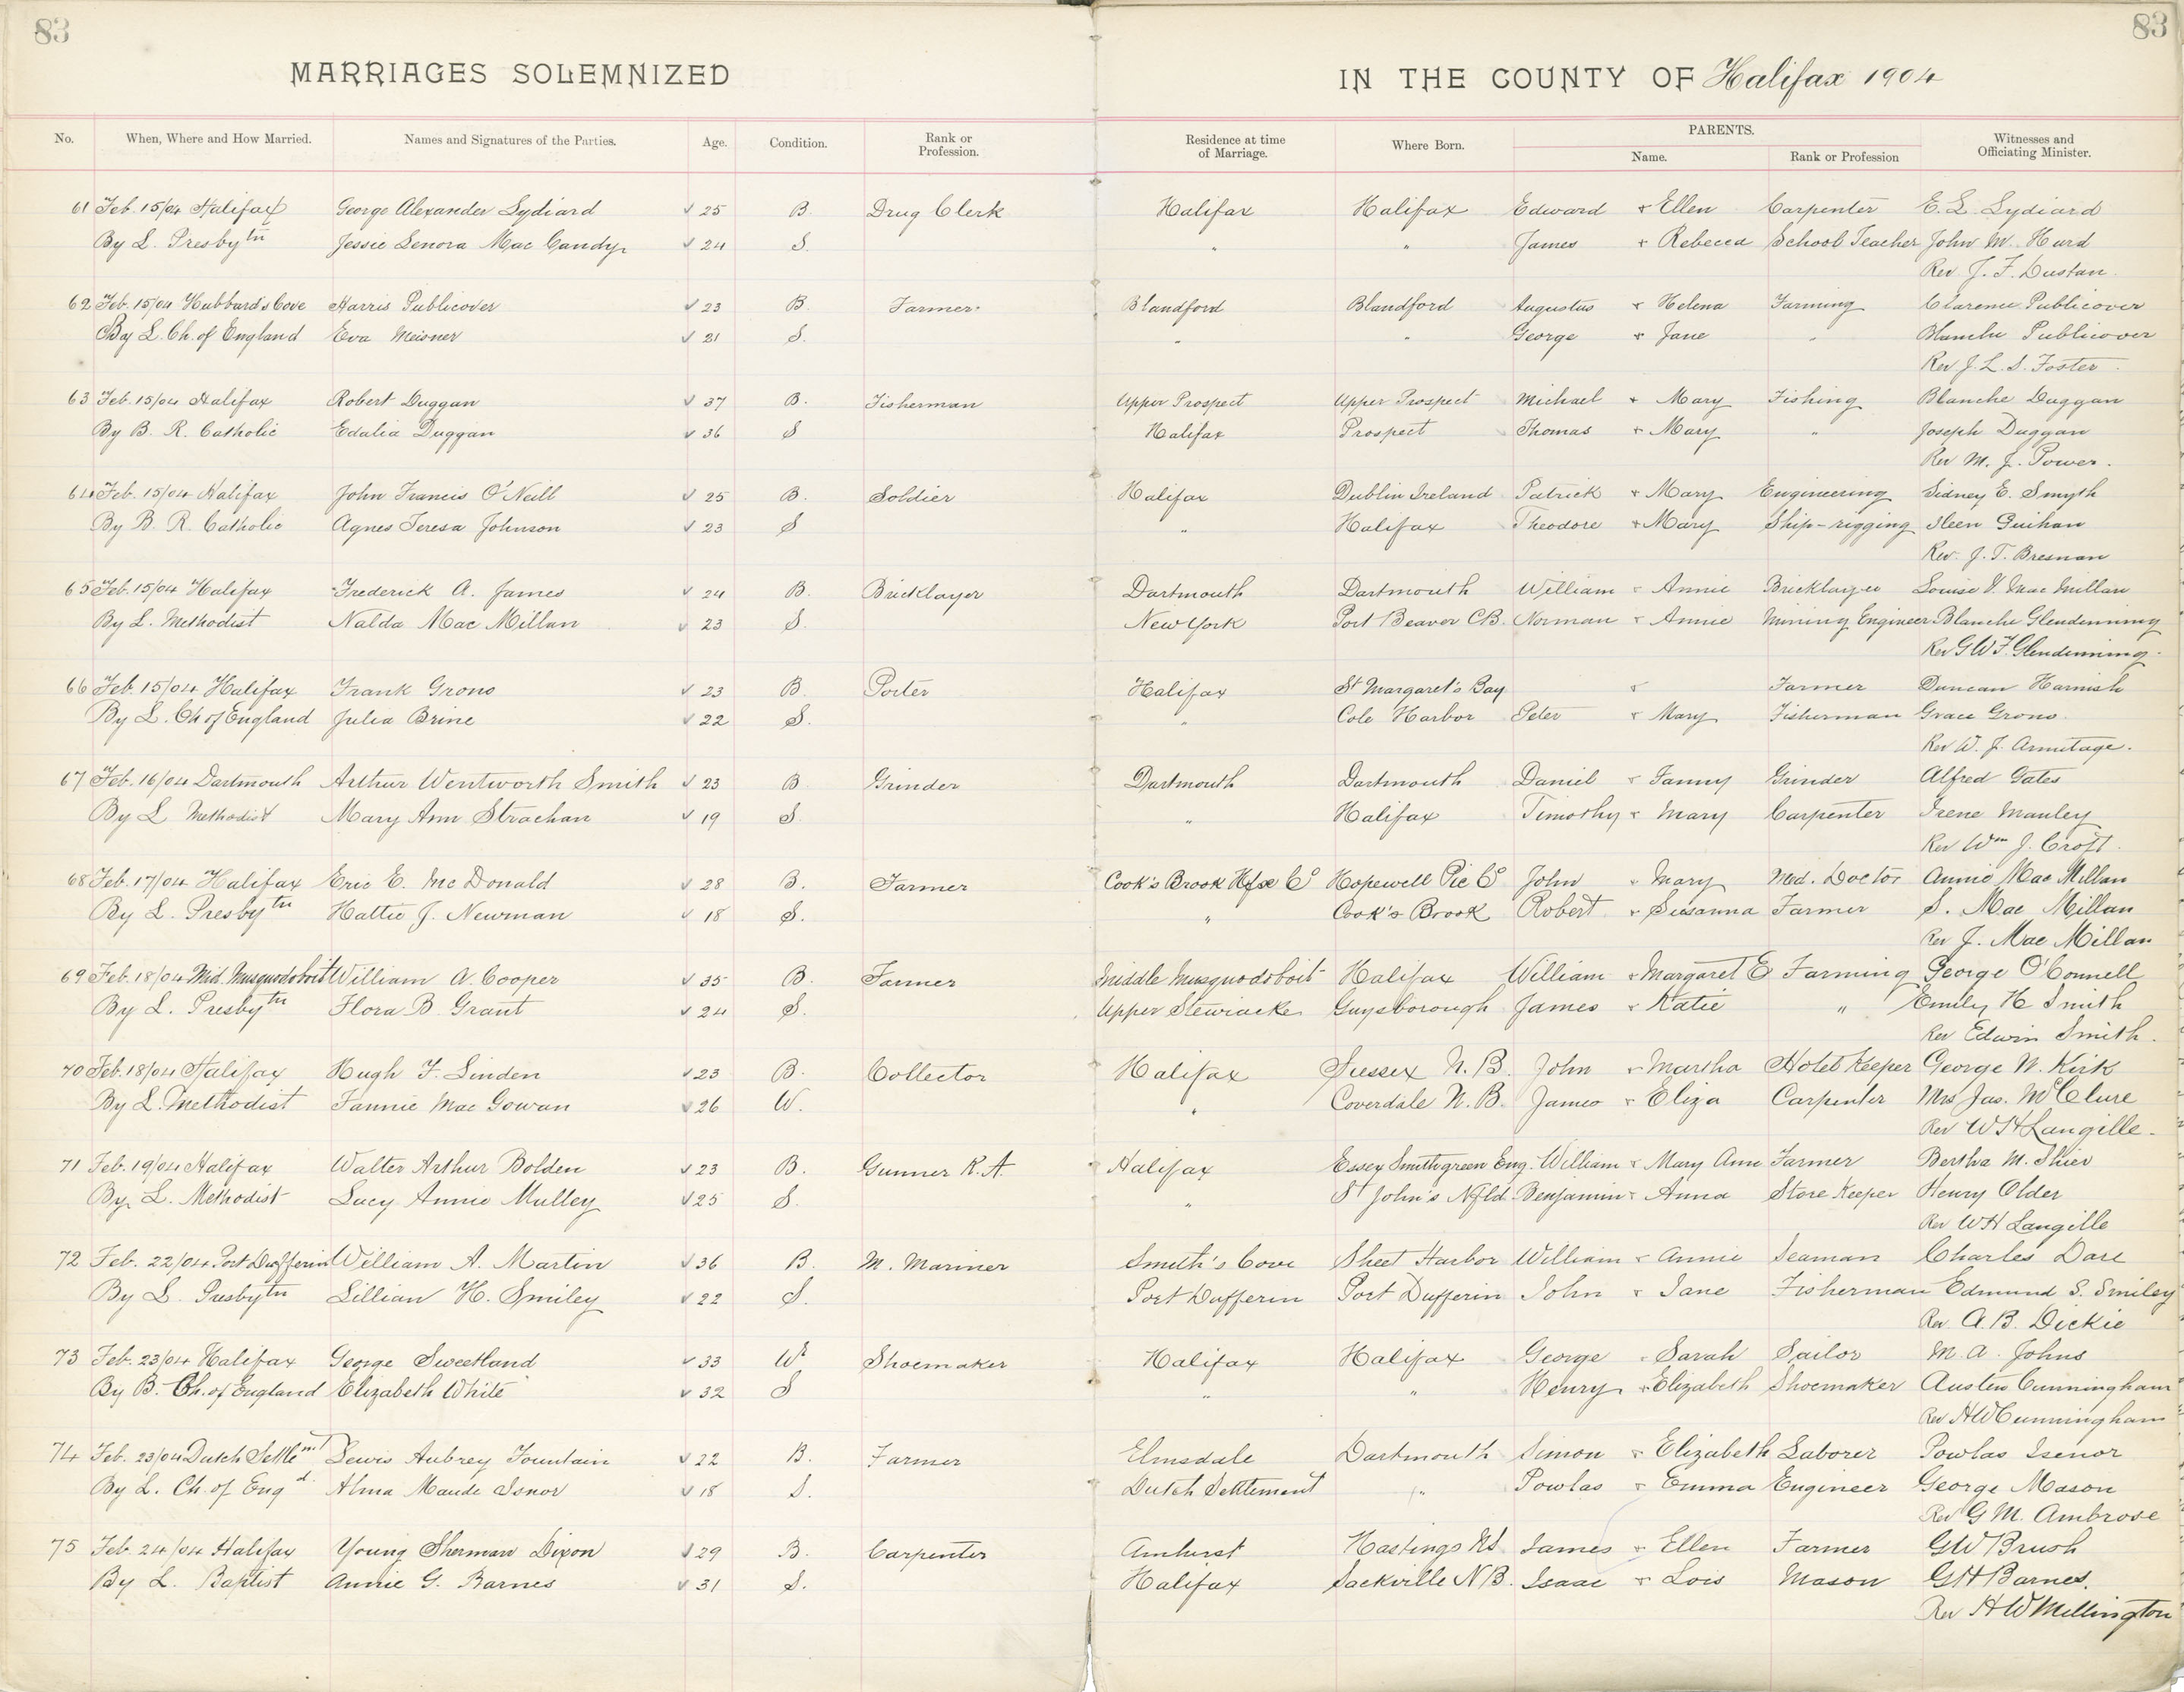 83 83
MARRIAGES SOLEMNIZED IN THE COUNTY OF Halifax 1904
No. When, Where and How Married. Names and Signatures of the Parties. Age. Condition. Rank or Profession. Residence at time of Marriage. Where Born. PARENTS. Name. Rank or Profession Witnesses and Officiating Minister.
61 Feb. 15/04 Halifax George Alexander Lydiard √ 25 B. Drug Clerk Halifax Halifax Edward & Ellen Carpenter E. L. Lydiard
By L. Presbytn Jessie Lenora Mac Candy √ 24 S. " " James & Rebecca School Teacher John M. Hurd
Rev J. F. Dustan.
62 Feb. 15/04 Hubbard's Cove Harris Publicover √ 23 B. Farmer Blandford Blandford Augustus & Helena Farming Clarence Publicover
By L. Ch. of England Eva Meisner √ 21 S. " " George & Jane " Blanche Publicover
Rev J. L. S. Foster
63 Feb. 15/04 Halifax Robert Duggan √ 37 B. Fisherman Upper Prospect Upper Prospect Michael & Mary Fishing Blanche Duggan
By B. R. Catholic Edalia Duggan √ 36 S Halifax Prospect Thomas & Mary " Joseph Duggan
Rev M. J. Power.
64 Feb. 15/04 Halifax John Francis O'Neill √ 25 B. Soldier Halifax Dublin Ireland Patrick & Mary Engineering Sidney E. Smyth
By B. R. Catholic Agnes Teresa Johnson √ 23 S " Halifax Theodore & Mary Ship-rigging Ileen Guihan
Rev. J. T. Bresnan
65 Feb. 15/04 Halifax Frederick A. James √ 24 B. Bricklayer Dartmouth Dartmouth William & Annie Bricklayer Louise V. Mac Millan
By L. Methodist Nalda Mac Millan √ 23 S. New York Port Beaver CB. Norman & Annie Mining Engineer Blanche Glendenning
Rev G W F Glendenning.
66 Feb. 15/04 Halifax Frank Grono √ 23 B. Porter Halifax St Margaret's Bay & Farmer Duncan Harnish
By L. Ch of England Julia Brine √ 22 S. " Cole Harbor Peter & Mary Fisherman Grace Grono
Rev W. J. Armitage.
67 Feb. 16/04 Dartmouth Arthur Wentworth Smith √ 23 B Grinder Dartmouth Dartmouth Daniel & Fanny Grinder Alfred Gates
By L Methodist Mary Ann Strachan √ 19 S. " Halifax Timothy & Mary Carpenter Irene Manley
Rev Wm J. Croft.
68 Feb. 17/04 Halifax Eric E. Mc Donald √ 28 B. Farmer Cook's Brook Hfx Co Hopewell Pic Co John & Mary Med. Doctor Annie Mac Millan
By L. Presbytn Hattie J. Newman √ 18 S. " Cook's Brook Robert & Susanna Farmer S. Mac Millan
Rev J. Mac Millan
69 Feb. 18/04 Mid. Musquodoboit William A. Cooper √ 35 B. Farmer Middle Musquodoboit Halifax William & Margaret E Farming George O'Connell
By L. Presbytn Flora B Grant √ 24 S. Upper Stewiacke Guysborough James & Katie " Emily H Smith
Rev Edwin Smith.
70 Feb. 18/04 Halifax Hugh F. Linden √ 23 B. Collector Halifax Sussex N. B. John & Martha Hotel Keeper George W. Kirk
By L. Methodist Fannie Mac Gowan √ 26 W. " Coverdale N. B. James & Eliza Carpenter Mrs Jas. McClure
Rev W H Langille.
71 Feb. 19/04 Halifax Walter Arthur Bolden √ 23 B. Gunner R. A. Halifax Essex Smithgreen Eng. William & Mary Ann Farmer Bertha M. Shier
By L. Methodist Lucy Annie Mulley √ 25 S. " St John's Nfld. Benjamin & Anna Store Keeper Henry Older
Rev W H Langille
72 Feb. 22/04 Port Dufferin William A. Martin √ 36 B. M. Mariner Smith's Cove Sheet Harbor William & Annie Seaman Charles Dare
By L Presbytn Lillian H. Smiley √ 22 S. Port Dufferin Port Dufferin John & Jane Fisherman Edmund S. Smiley
Rev A. B. Dickie
73 Feb. 23/04 Halifax George Sweetland √ 33 Wr Shoemaker Halifax Halifax George & Sarah Sailor M. A. Johns
By B. Ch. of England Elizabeth White √ 32 S " " Henry & Elizabeth Shoemaker Austen Cunningham
Rev H W Cunningham
74 Feb. 23/04 Dutch Settlemt Lewis Aubrey Fountain √ 22 B. Farmer Elmsdale Dartmouth Simon & Elizabeth Laborer Powlas Isenor
By L. Ch. of Engd. Alma Maude Isnor √ 18 S. Dutch Settlement " Powlas & Emma Engineer George Mason
Rev G M. Ambrose
75 Feb 24/04 Halifax Young Sherman Dixon √ 29 B. Carpenter Amherst Hastings NS. James & Ellen Farmer G W Brush
By L. Baptist Annie G. Barnes √ 31 S. Halifax Sackville N B. Isaac & Lois Mason G H Barnes.
Rev H W Millington